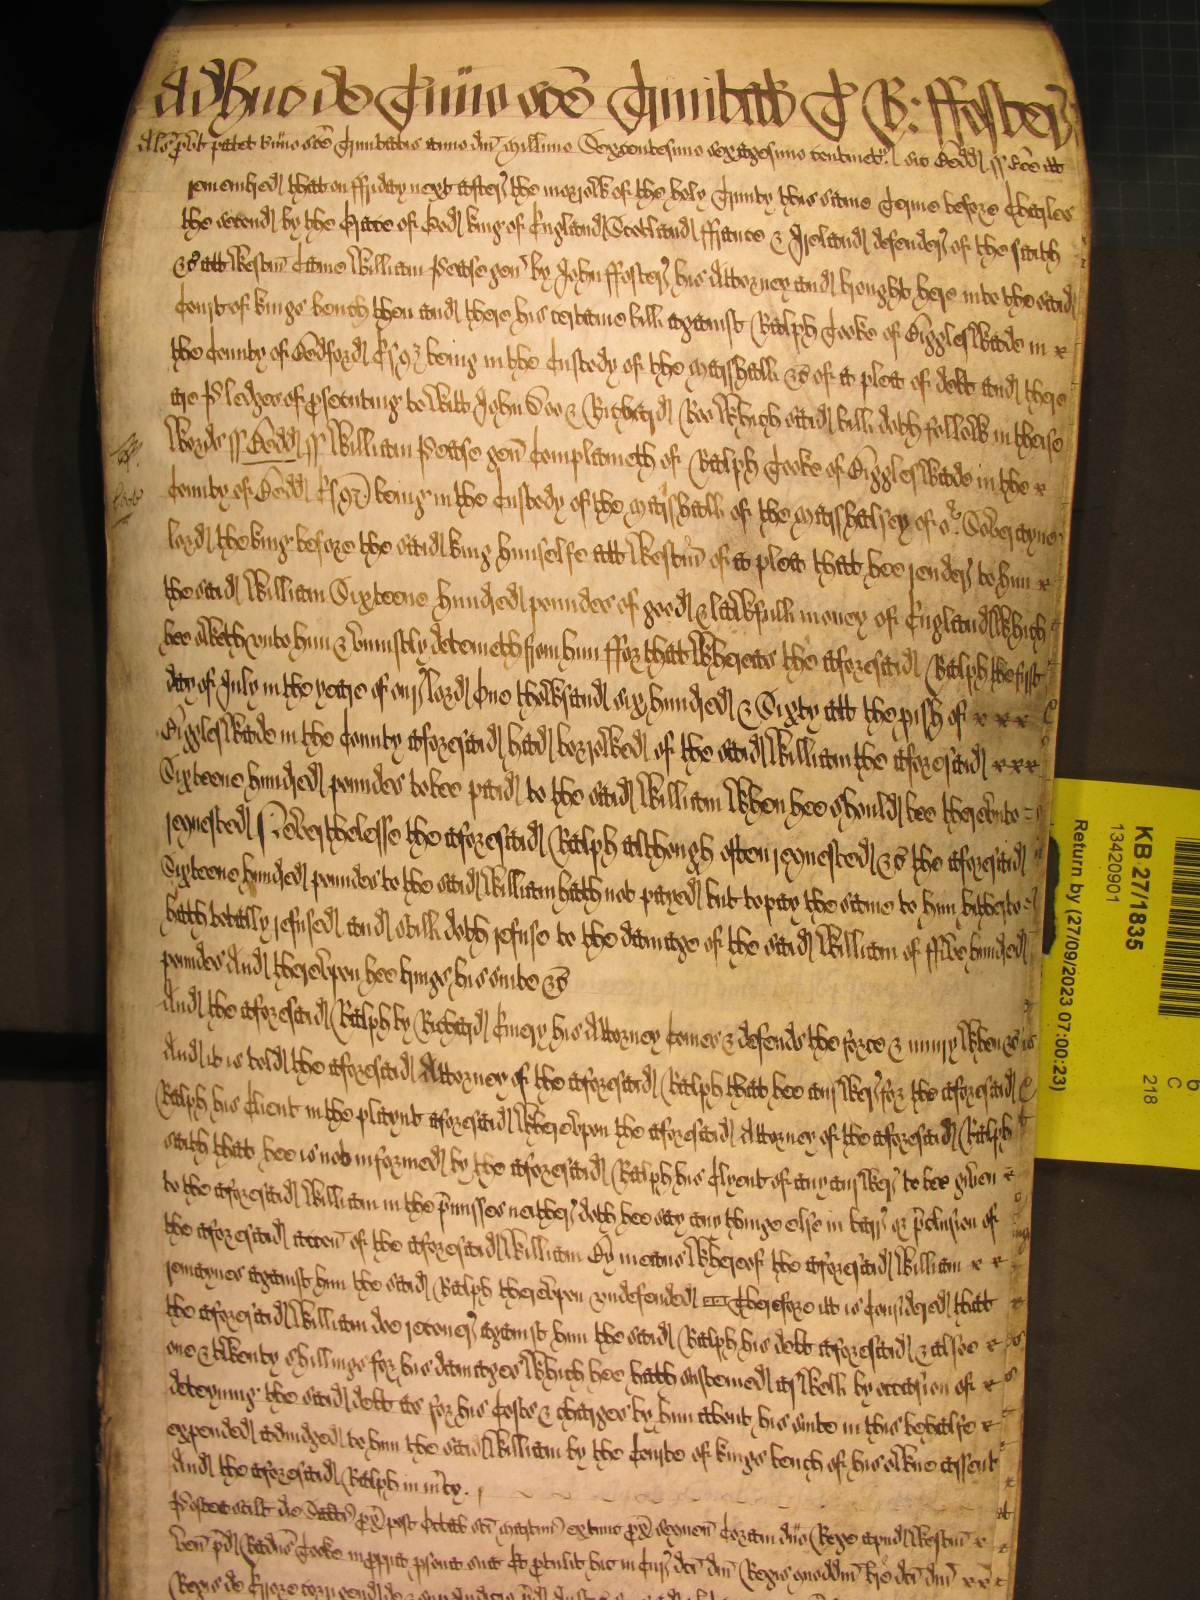 Adhuc de Tiino sce Trinitatis T B: ffoster
Als put patet Tiino sce Trinitatis anno dni Millimo Sexcentesimo sexagesimo sic Bedd ss Bee itt
remembred that on ffriday next after the morrow of the holy Trinity this same Terme before Charles
the second by the Grace of God king of England Scotland ffrance & Ireland defender of the faith
&c att Westm Came William Pease gen by John ffoster his Attorney and brought here into the said
Court of kings bench then and there his certaine bill against Ralph Cooke of Biggleswade in
the County of Bedford Esqr being in the Custody of the Marshall &c of a plea of debt and there
are Pledges of psecuting to Witt John Doo & Richard Roo Which said bill doth follow in these
Words ss Bedd ss William Pease gen Complaineth of Ralph Cooke of Biggleswade in the
County of Bedd Esqr being in the Custody of the Marshall of the Marshalsey of or Soverayne
lord the king before the said king himselfe att Westm of a plea that hee render to him
the said William Sixteene hundred poundes of good & lawfull money of England Which
hee oweth unto him & uniustly deteineth from him ffor that Whereas the aforesaid Ralph the first
day of July in the yeare of our lord One thowsand six hundred & Sixty att the pish of
Biggleswade in the County aforesaid had borrowed of the said William the aforesaid
Sixteene hundred poundes to bee paid to the said William When hee should bee therevnto
requested Neverthelesse the aforesaid Ralph although often requested &c the aforesaid
Sixteene hundred poundes to the said William hath not payed but to pay the same to him hitherto
hath totally refused and still doth refuse to the damage of the said William of ffive hundred
poundes And therevpon hee brings his suite &c
And the aforesaid Ralph by Richard Emery his Attorney Comes & defends the force & iniury When &c
And it is told the aforesaid Attorney of the aforesaid Ralph that hee answer for the aforesaid
Ralph his Client in the playnt aforesaid Wherevpon the aforesaid Attorney of the aforesaid Ralph
saith that hee is not informed by the aforesaid Ralph his Clyent of any answer to bee given
to the aforesaid William in the pmisses neither doth hee say any thinge else in barr or pclusion of
the aforesaid accon of the aforesaid William By meanes Whereof the aforesaid William
remaynes against him the said Ralph therevpon vndefended Therefore itt is Considered that
the aforesaid William doe recover against him the said Ralph his debt aforesaid & alsoe
one & twenty shillings for his damages Which hee hath susteined as Well by occasion of
deteyning the said debt as for his Costs & charges by him about his suite in this behalfe
expended adiudged to him the said William by the Courte of kings bench of his owne assent
And the aforesaid Ralph in mcy.
Postea scilt die px post Octab sci Martini extunc px sequen Coram dno Rege apud Westm
ven pd Radus Cooke in ppria psona sua Et ptulit hic in Cur dci dni Regis quoddm bre dci dni
Regis de Errore corrigend de

KB 27/1835
13420901
Return by (27/09/2023 07:00:23)
C
218